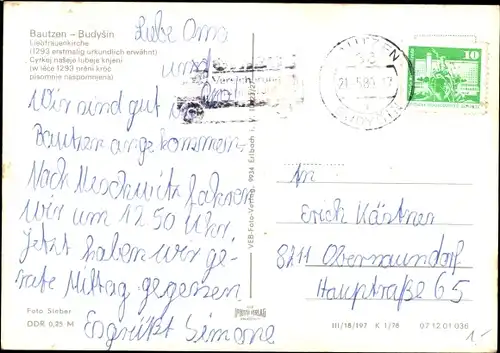 Bautzen – Budyšin
Liebfrauenkirche
(1293 erstmalig urkundlich erwähnt)
Cyrkej našeje lubeje knjeni
(w lěće 1293 prěni króć
pisomnje naspomnjena)
Liebe Oma
und
Wir sind gut in
Bautzen angekommen.
Nach Neschwitz fahren
wir um 12 50 Uhr.
Jetzt haben wir ge-
rade Mittag gegessen
Es grüßt Simone
Foto Sieber
DDR 0,25 M
VEB-Foto-Verlag, 9934 Erlbach i. V.
BAUTZEN
21.5.80
BUDYŠIN
10
An
Erich Kästner
8211 Obernaundorf
Hauptstraße 65
III/18/197 K 1/76 07 12 01 036
1,-